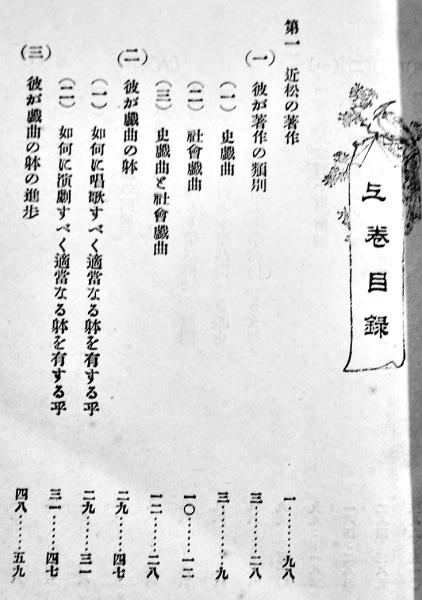 上卷目錄
第一 近松の著作 一……九八
(一) 彼が著作の類別 三……二八
(一) 史戯曲 三……九
(二) 社會戯曲 一〇……一二
(三) 史戯曲と社會戯曲 一二……二八
(二) 彼が戯曲の躰 二九……四七
(一) 如何に唱歌すべく適當なる躰を有する乎 二九……三一
(二) 如何に演劇すべく適當なる躰を有する乎 三一……四七
(三) 彼が戯曲の躰の進步 四八……五九